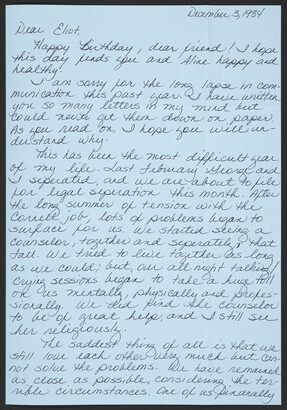 December 3, 1984
Dear Eliot,
Happy Birthday, dear friend! I hope
this day finds you and Aline happy and
healthy!
I am sorry for the long lapse in com-
munication this past year. I have written
you so many letters in my mind but
could never get them down on paper.
As you read on, I hope you will un-
derstand why.
This has been the most difficult year
of my life. Last February George and
I separated, and we are about to file
for legal separation this month. After
the long summer of tension with the
Cornell job, lots of problems began to
surface for us. We started seeing a
counselor, together and seperately, that
fall. We tried to live together as long
as we could; but, our all night talking/
crying sessions began to take a huge toll
on us mentally, physically and profes-
sionally. We did find the counselor
to be of great help, and I still see
her religiously.
The saddest thing of all is that we
still love each other very much but can-
not solve the problems. We have remained
as close as possible, considering the ter-
rible circumstances. One of us